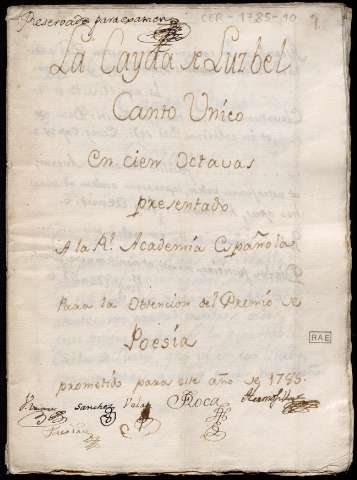 Reservado para examen
CER-1785-10
La Cayda de Luzbel
Canto Unico
En cien Octavas
presentado
A la Rl. Academia Española
Para la Obtencion del Premio de
Poesía
RAE
prometido para este año de 1785.
Sanchez Roca